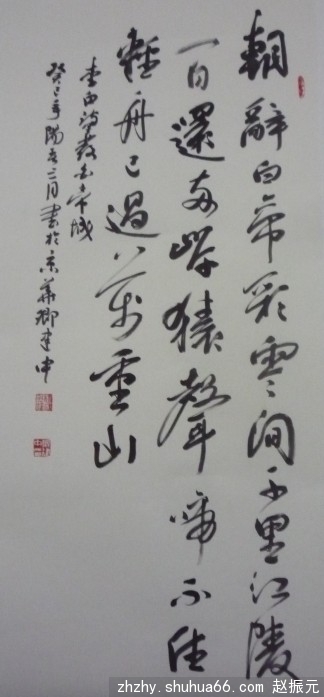 朝辭白帝彩雲間千里江陵
一日還兩岸猿聲啼不住
輕舟已過萬重山
李白詩發白帝城
癸巳年陽春三月書於京華
zhzhy.shuhua66.com 赵振元